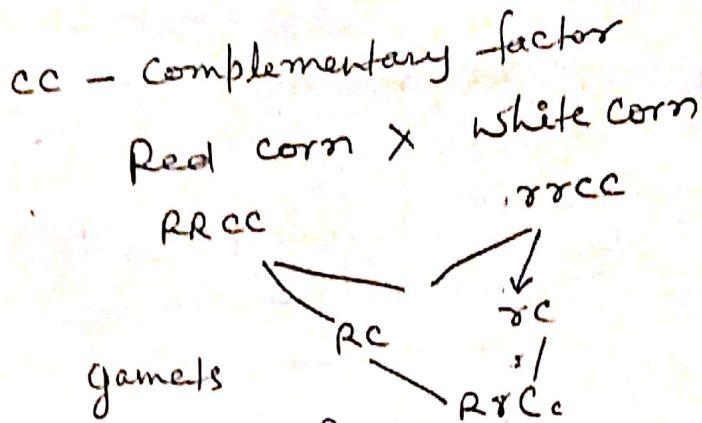 CC - Complementary factor
Red corn X White corn
RRCC rrCC
RC rC
gamets
RrCc